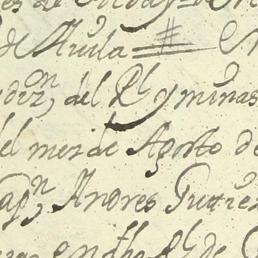 de Auila
dizon del Rl y minas
del mes de Agosto de
Capn Andres Gutierr
en dho Rl de